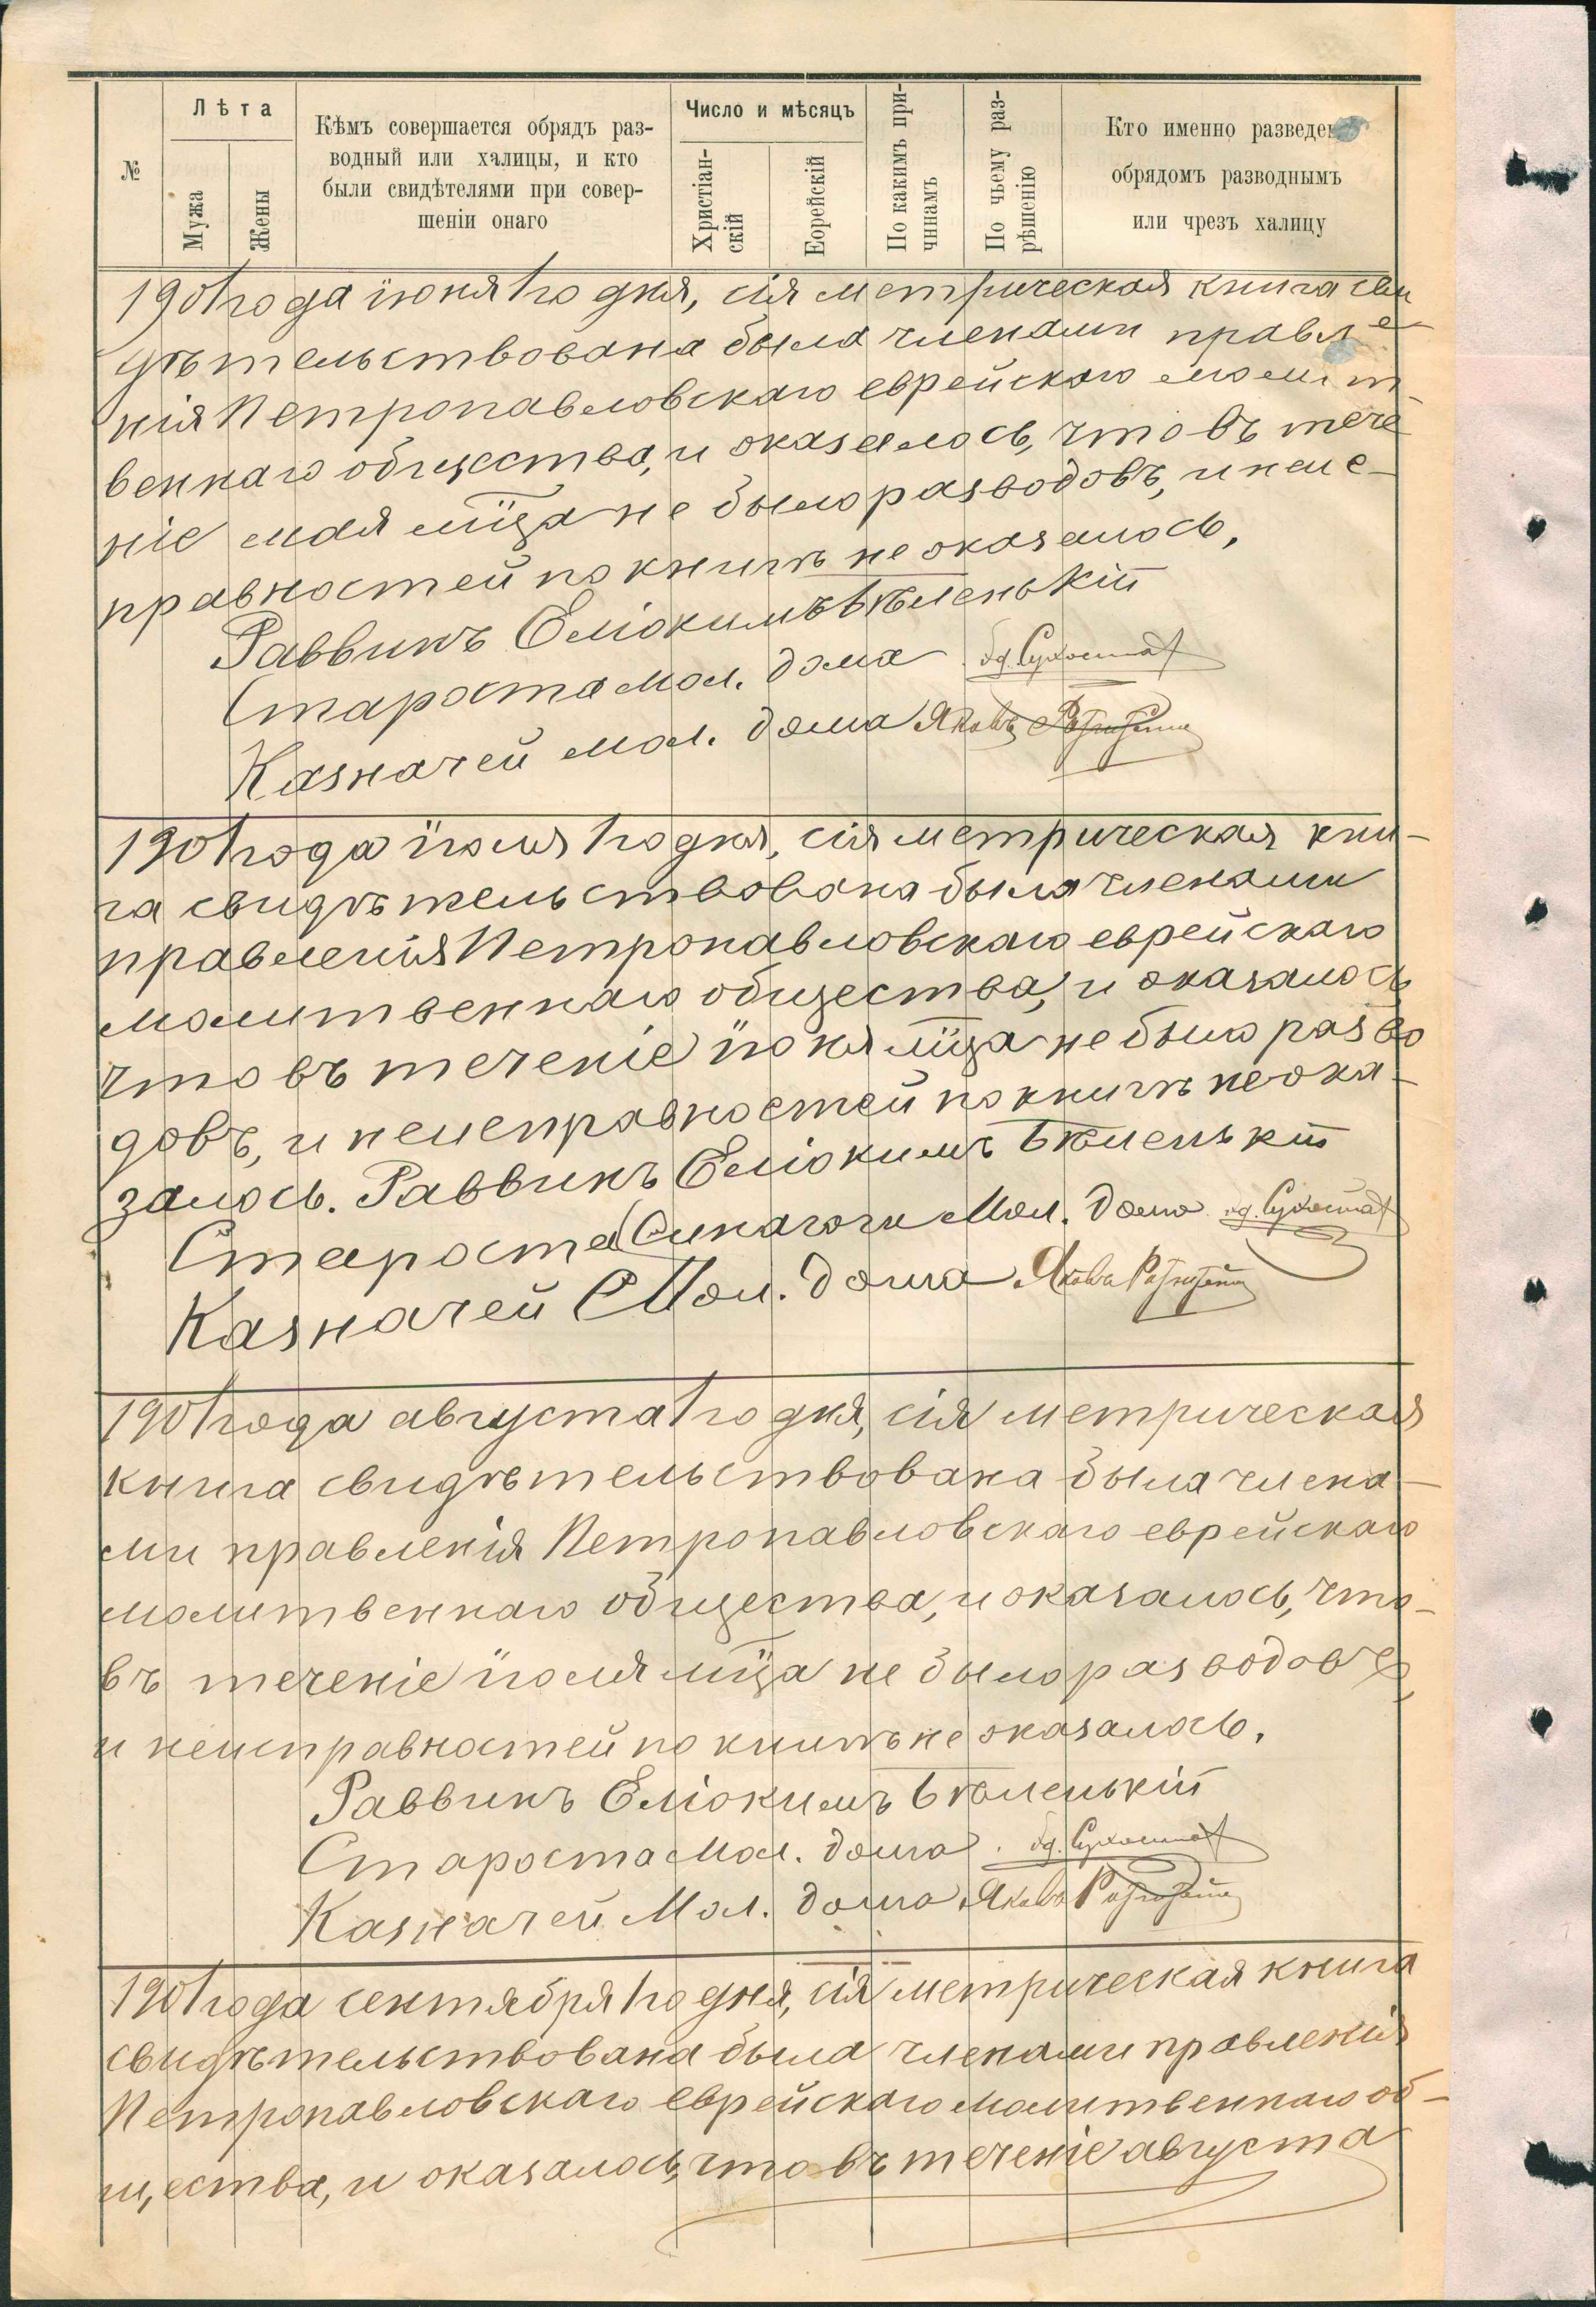 №
Лѣта
Мужа
Жены
Кѣмъ совершается обрядъ раз-
водный или халицы, и кто
были свидѣтелями при совер-
шеніи онаго
Число и мѣсяцъ
Христіан-
скій
Еорейскій
По какимъ при-
чинамъ
По чьему раз-
рѣшенію
Кто именно разведен
обрядомъ разводнымъ
или чрезъ халицу
1901 года іюня 1го дня, сія метрическая книга сви
дѣтельствована была членами правле-
нія Петропавловскаго еврейскаго молит
веннаго общества, и оказалось, что въ тече
ніе мая мца не было разводовъ, и неис-
правностей по книгѣ не оказалось.
Раввинъ Еліокимъ Бѣленькій
Староста мол. дома
Казначей мол. дома Яковъ
1901 года іюля 1го дня, сія метрическая кни-
га свидѣтельствована была членами
правленія Петропавловскаго еврейскаго
молитвеннаго общества, и оказалось
что въ теченіе іюня мца не было разво
довъ, и неисправностей по книгѣ не ока-
залось. Раввинъ Еліокимъ Бѣленькій
Староста Синагоги Мол. дома
Казначей Мол. дома Яковъ
1901 года августа 1го дня, сія метрическая
книга свидѣтельствована была члена-
ми правленія Петропавловскаго еврейскаго
молитвеннаго общества, и оказалось, что-
въ теченіе іюля мца не было разводовъ,
и неисправностей по книгѣ не оказалось.
Раввинъ Еліокимъ Бѣленькій
Староста Мол. дома
Казначей Мол. дома Яковъ
1901 года сентября 1го дня, сія метрическая книга
свидѣтельствована была членами правленія
Петропавловскаго еврейскаго молитвеннаго об-
щества, и оказалось, что въ теченіе августа